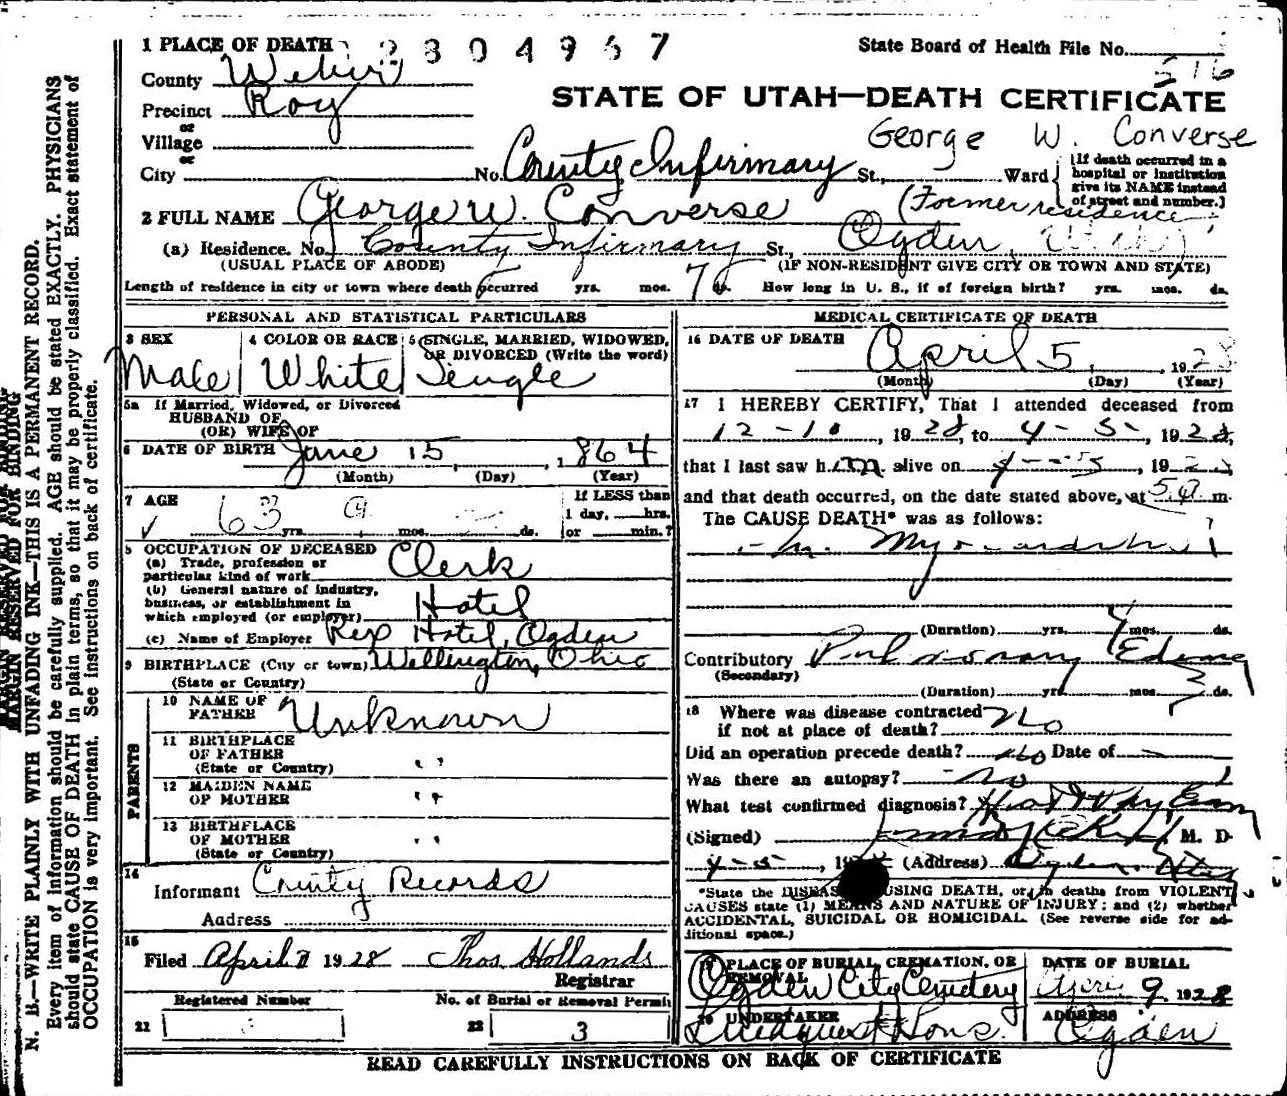 1 PLACE OF DEATH 2304967 State Board of Health File No.
County Weber 516
Precinct Roy STATE OF UTAH—DEATH CERTIFICATE
or
Village George W. Converse
or
City No. County Infirmary St., Ward {If death occurred in a
hospital or institution
give its NAME instead
of street and number.}
2 FULL NAME George W. Converse (Former residence
(a) Residence. No. County Infirmary St., Ogden, Utah)
(USUAL PLACE OF ABODE) (IF NON-RESIDENT GIVE CITY OR TOWN AND STATE)
Length of residence in city or town where death occurred yrs. mos. ds. How long in U. S., if of foreign birth? yrs. mos. ds.
PERSONAL AND STATISTICAL PARTICULARS
3 SEX 4 COLOR OR RACE 5 SINGLE, MARRIED, WIDOWED,
OR DIVORCED (Write the word)
Male White Single
5a If Married, Widowed, or Divorced
HUSBAND OF
(OR) WIFE OF
6 DATE OF BIRTH June 15, 1864
(Month) (Day) (Year)
7 AGE If LESS than
63 9 1 day, hrs.
yrs. mos. ds. or min.?
8 OCCUPATION OF DECEASED
(a) Trade, profession or
particular kind of work Clerk
(b) General nature of industry,
business, or establishment in
which employed (or employer) Hotel
(c) Name of Employer Rex Hotel, Ogden
9 BIRTHPLACE (City or town) Wellington, Ohio
(State or Country)
PARENTS
10 NAME OF
FATHER Unknown
11 BIRTHPLACE
OF FATHER " "
(State or Country)
12 MAIDEN NAME
OF MOTHER " "
13 BIRTHPLACE
OF MOTHER " "
(State or Country)
14
Informant County Records
Address
15
Filed April 7 1928 Thos Hollands
Registrar
Registered Number No. of Burial or Removal Permit
21 22 3
MEDICAL CERTIFICATE OF DEATH
16 DATE OF DEATH
April 5, 1928
(Month) (Day) (Year)
17 I HEREBY CERTIFY, That I attended deceased from
12-10, 1928, to 4-5-, 1928,
that I last saw him alive on 4-5, 1928
and that death occurred, on the date stated above, at m.
The CAUSE DEATH* was as follows:
(Duration) yrs. 4 mos. ds.
Contributory Pulmonary Edema
(Secondary)
(Duration) yrs. mos. 3 ds.
18 Where was disease contracted
if not at place of death? No
Did an operation precede death? No Date of —
Was there an autopsy? No
What test confirmed diagnosis?
(Signed) M. D.
4-5, (Address) Ogden, Utah
*State the DISEASE CAUSING DEATH, or, in deaths from VIOLENT
CAUSES state (1) MEANS AND NATURE OF INJURY; and (2) whether
ACCIDENTAL, SUICIDAL OR HOMICIDAL. (See reverse side for ad-
ditional space.)
19 PLACE OF BURIAL, CREMATION, OR DATE OF BURIAL
REMOVAL
Ogden City Cemetery April 9 1928
20 UNDERTAKER ADDRESS
Lindquist & Sons. Ogden
READ CAREFULLY INSTRUCTIONS ON BACK OF CERTIFICATE
MARGIN RESERVED FOR BINDING
N. B.—WRITE PLAINLY WITH UNFADING INK—THIS IS A PERMANENT RECORD.
Every item of information should be carefully supplied. AGE should be stated EXACTLY. PHYSICIANS
should state CAUSE OF DEATH in plain terms, so that it may be properly classified. Exact statement of
OCCUPATION is very important. See instructions on back of certificate.